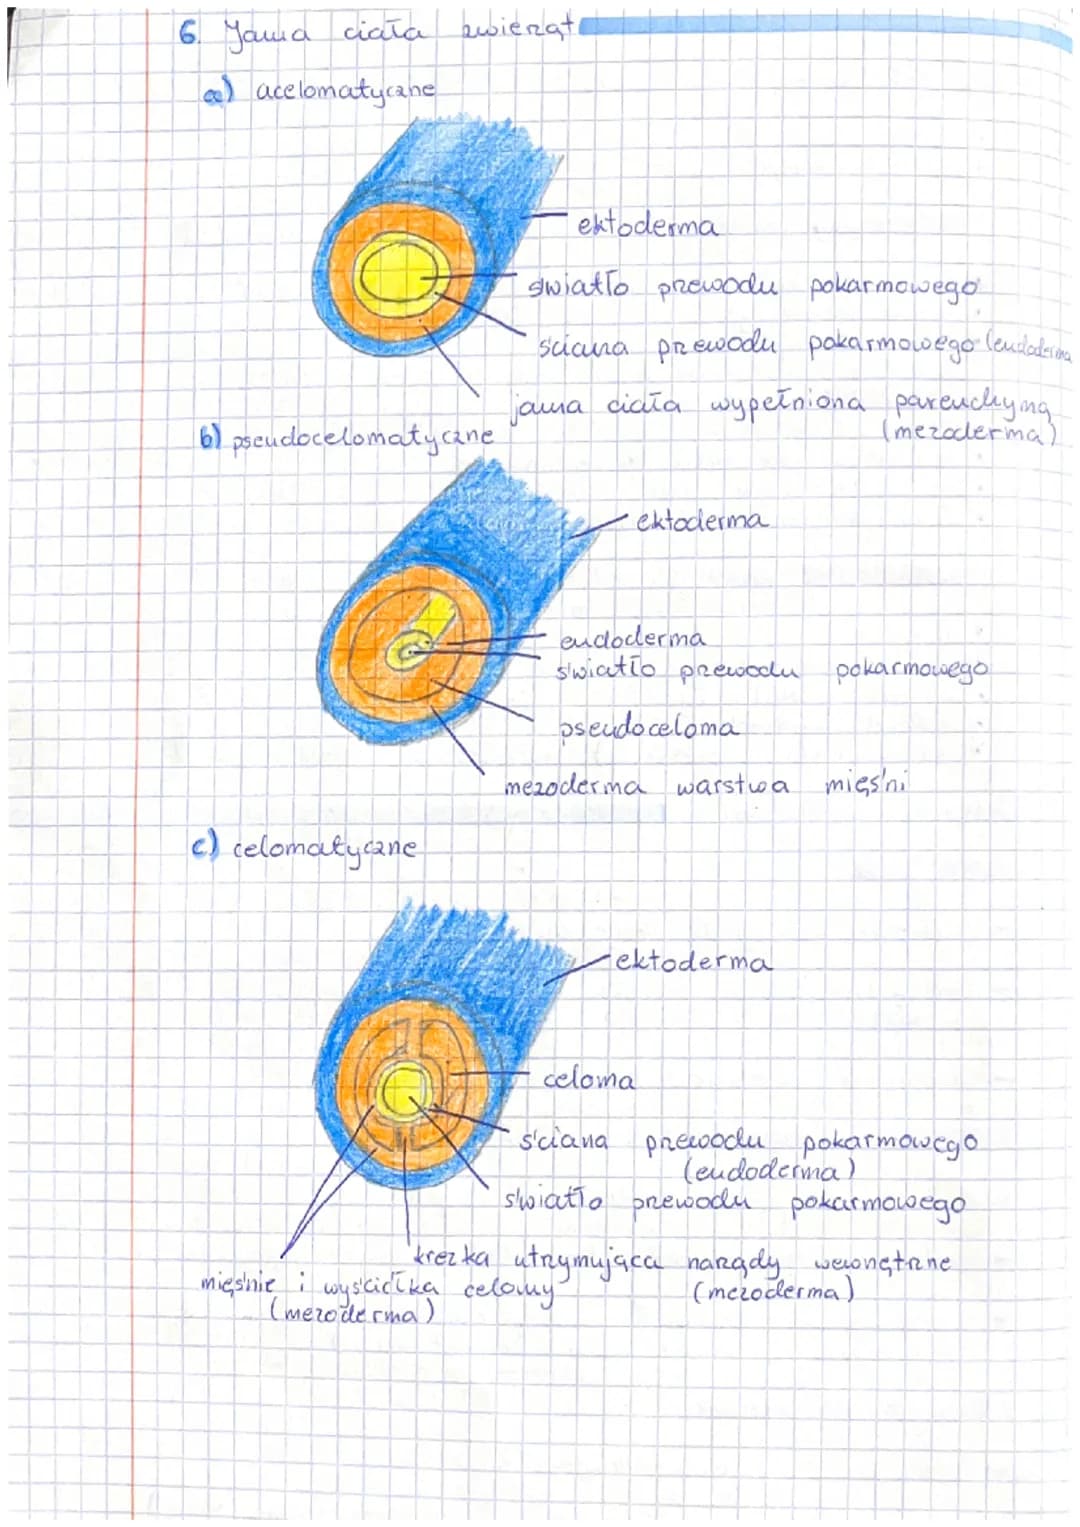 6. Jama ciała zwierząt
a) acelomatyczne
ektoderma
światło przewodu pokarmowego
ściana przewodu pokarmowego (endoderma
jama ciała wypełniona parenchymą
(mezoderma)
b) pseudocelomatyczne
ektoderma
endoderma
światło przewodu pokarmowego
pseudoceloma
mezoderma warstwa mięśni
c) celomatyczne
ektoderma
celoma
ściana przewodu pokarmowego
(endoderma)
światło przewodu pokarmowego
krezka utrzymująca narządy wewnętrzne
(mezoderma)
mięśnie i wyściółka celomy
(mezoderma)